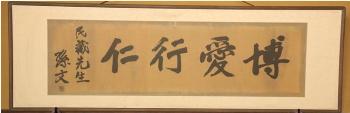 博愛行仁
民藏先生
孫文